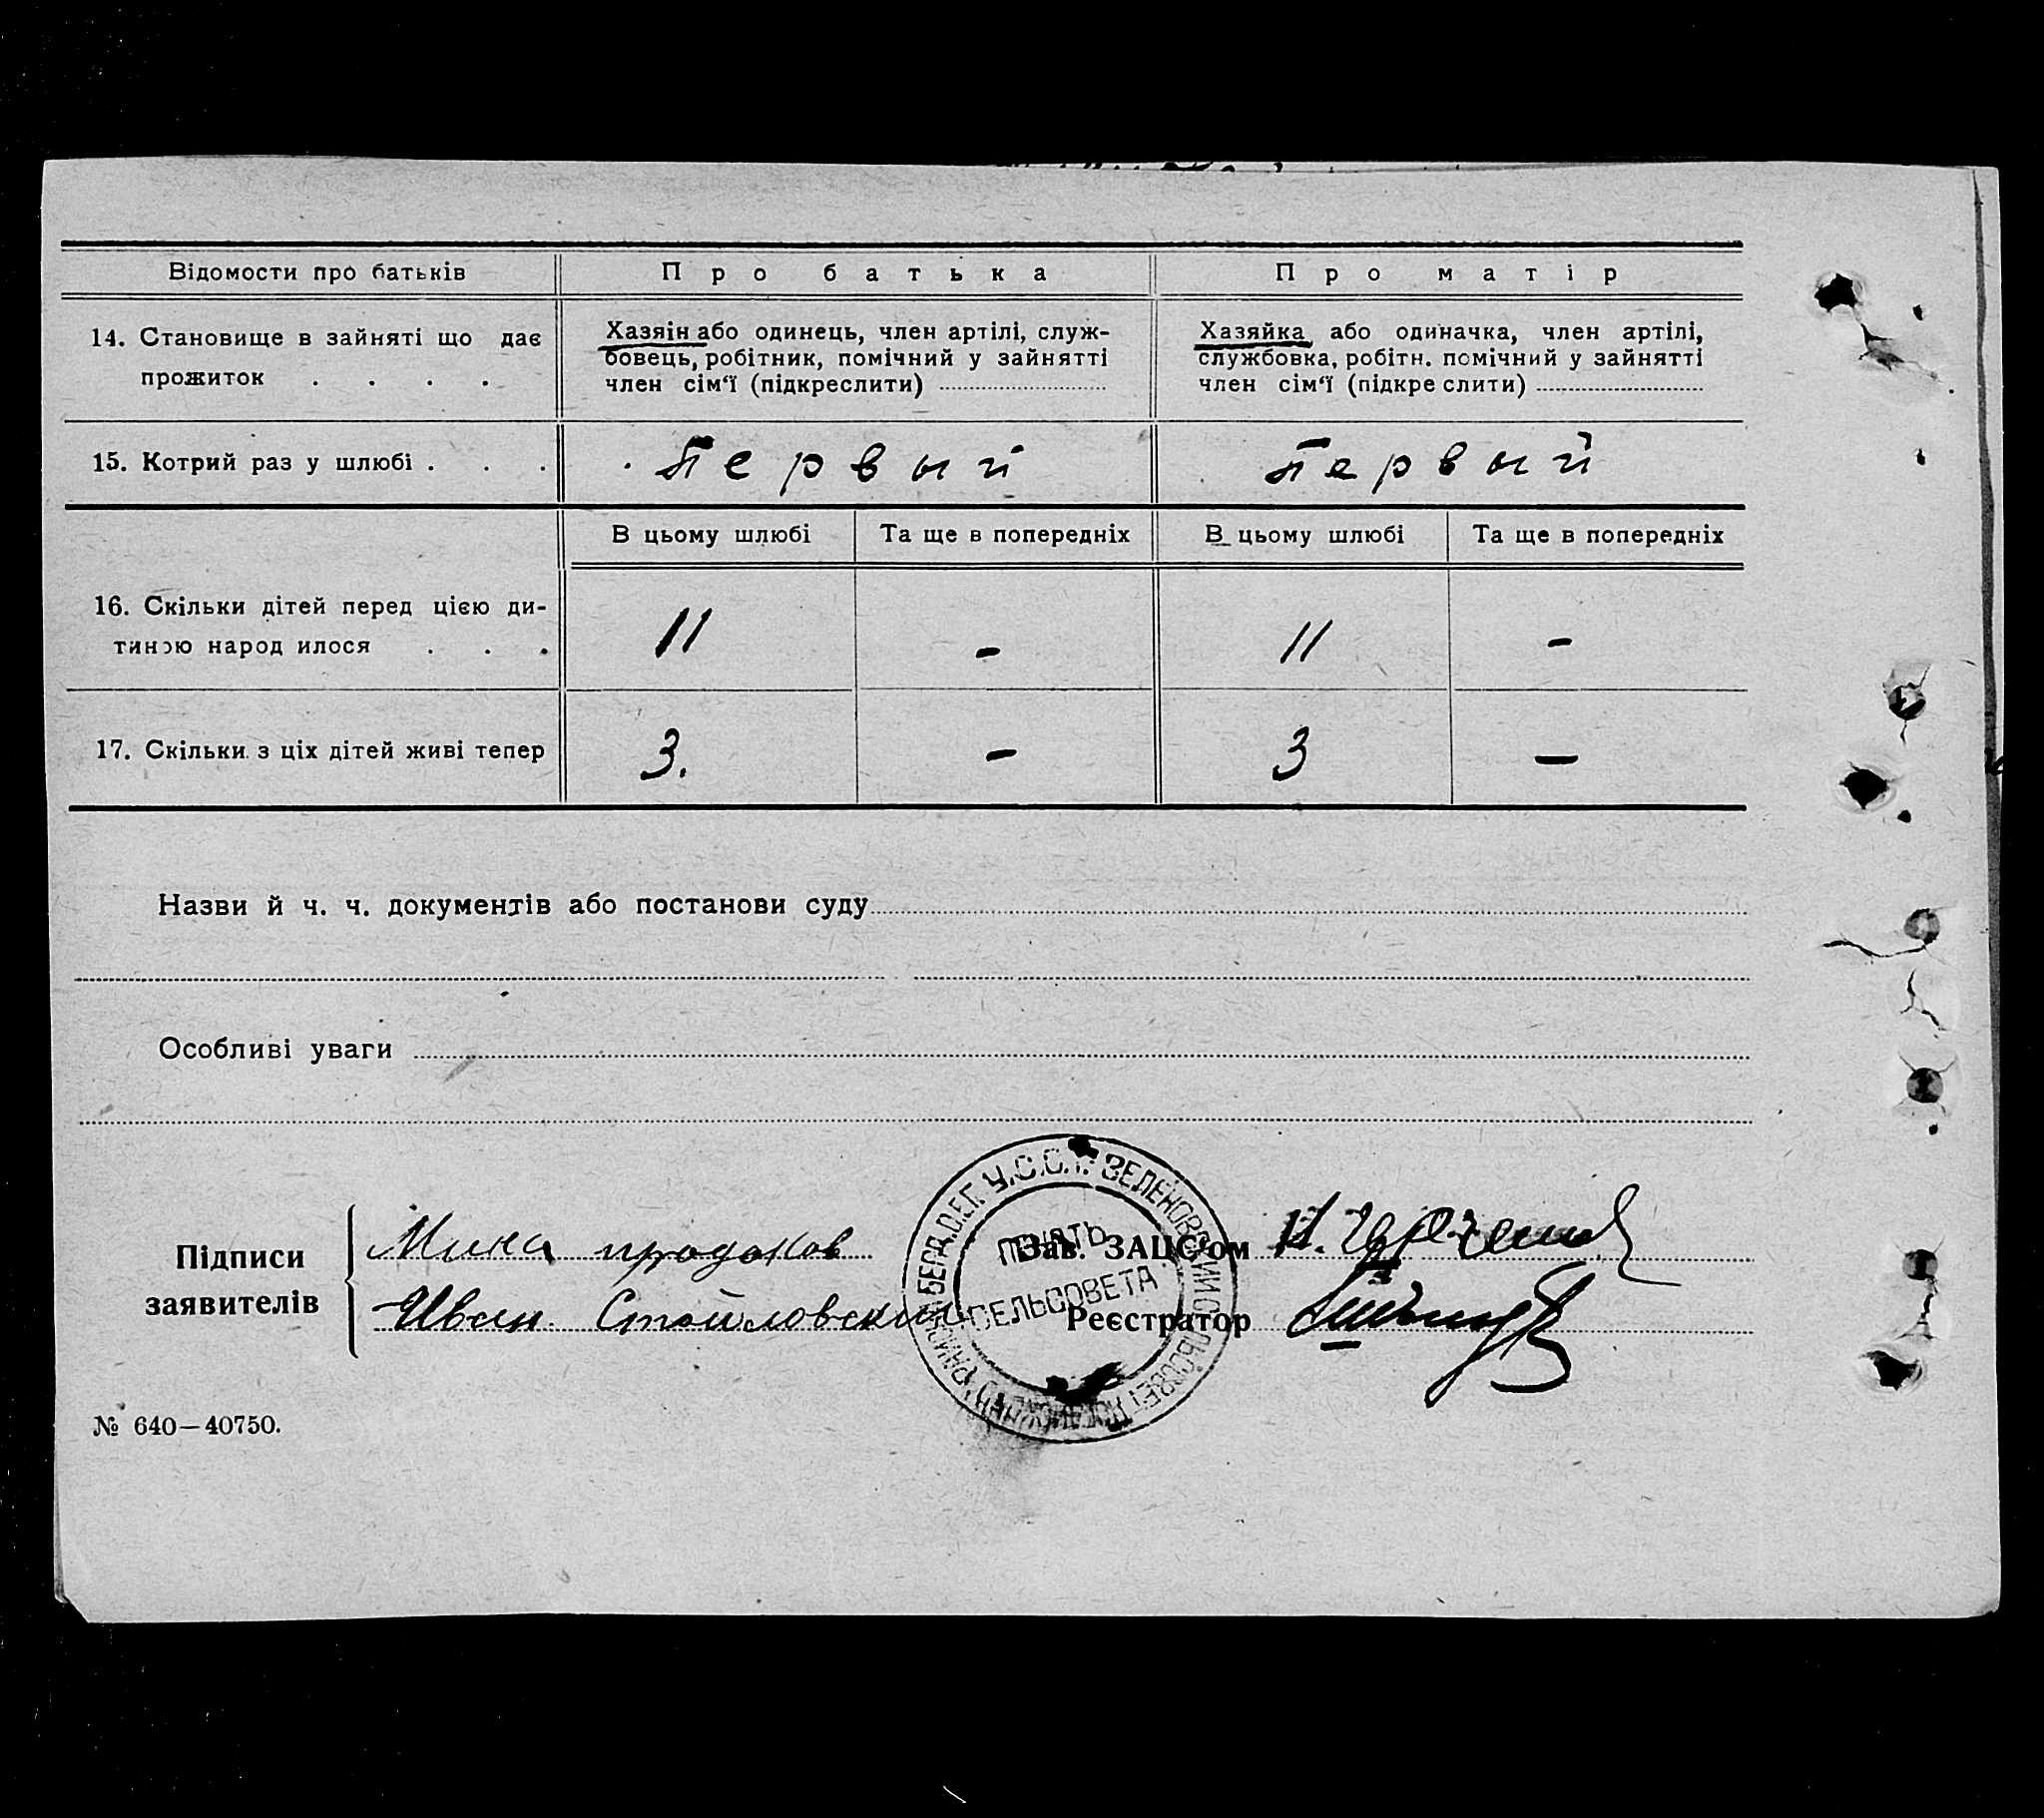 Відомости про батьків Про батька Про матір
14. Становище в зайняті що дає прожиток . . . .
Хазяін або одинець, член артілі, служ-
бовець, робітник, помічний у зайнятті
член сім'ї (підкреслити)
Хазяйка або одиначка, член артілі,
службовка, робітн. помічний у зайнятті
член сім'ї (підкреслити)
15. Котрий раз у шлюбі . . . Первый Первый
В цьому шлюбі Та ще в попередніх В цьому шлюбі Та ще в попередніх
16. Скільки дітей перед цією ди-
тиною народилося . . . 11 - 11 -
17. Скільки з ціх дітей живі тепер 3. - 3 -
Назви й ч. ч. документів або постанови суду
Особливі уваги
Підписи
заявителів
Мина
Иван Стойловский
Зав. ЗАЦС'ом
Реєстратор
У.С.С.Р. ЗЕЛЕНОВСКИЙ СЕЛЬСОВЕТ
СЕЛЬСОВЕТА
№ 640—40750.